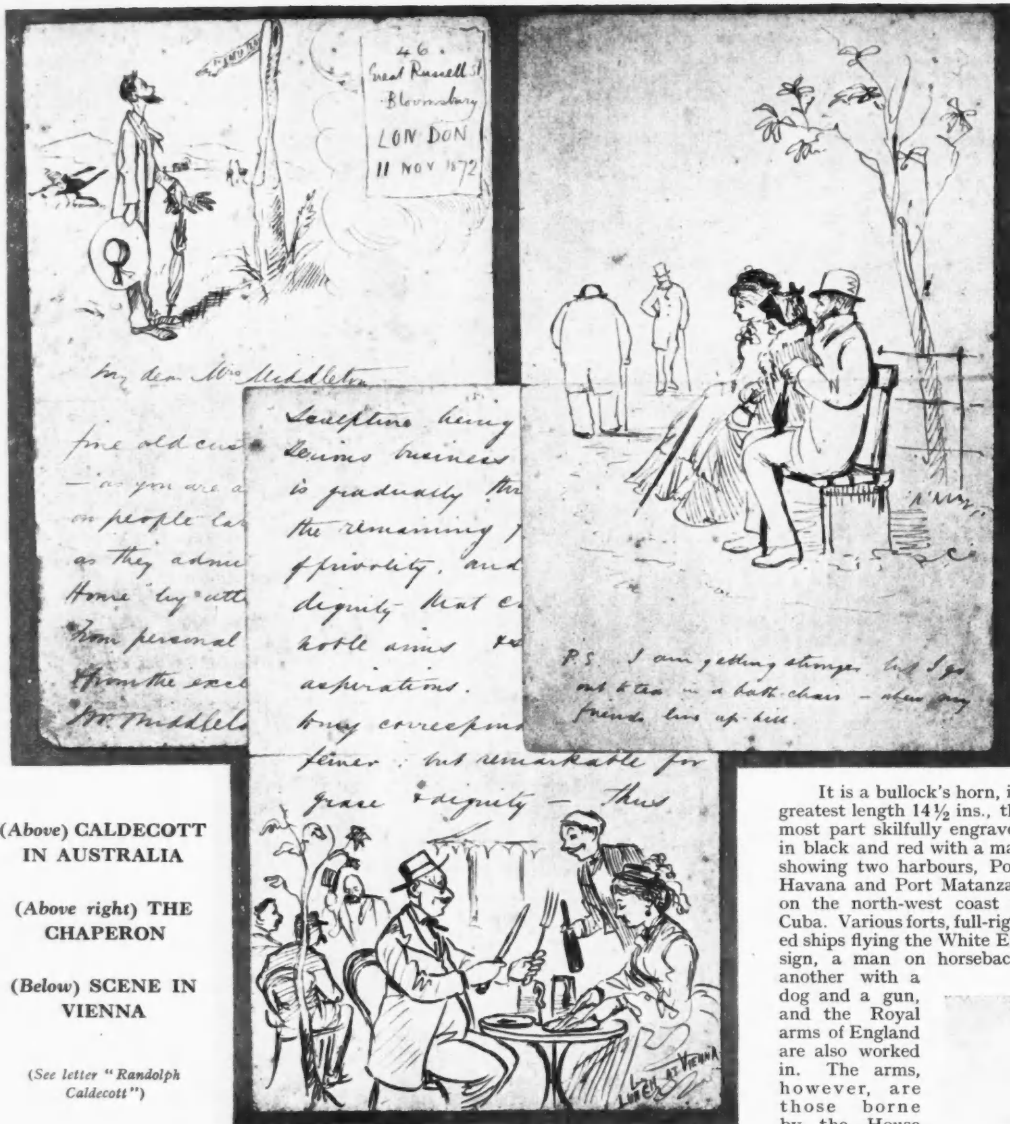 46
Great Russell St
Bloomsbury
LONDON
11 NOV 1872
My dear Mrs Middleton
fine old cus
— as you are a
on people
as they admi
Home by atte
From personal
& from the exce
Mr. Middleto
Sculpture being
Serious business
is gradually thr
the remaining
frivolity, and
dignity that c
noble aims &
aspirations.
My correspon
fewer: but remarkable for
grace & dignity — Thus
LUNCH AT VIENNA
R.C.
P.S. I am getting stronger but I go
out to tea in a bath-chair — when my
friends live up-hill.
(Above) CALDECOTT
IN AUSTRALIA
(Above right) THE
CHAPERON
(Below) SCENE IN
VIENNA
(See letter "Randolph
Caldecott")
It is a bullock's horn, i
greatest length 14½ ins., th
most part skilfully engrave
in black and red with a ma
showing two harbours, Po
Havana and Port Matanza
on the north-west coast
Cuba. Various forts, full-rig
ed ships flying the White E
sign, a man on horsebac
another with a
dog and a gun,
and the Royal
arms of England
are also worked
in. The arms,
however, are
those borne
by the House